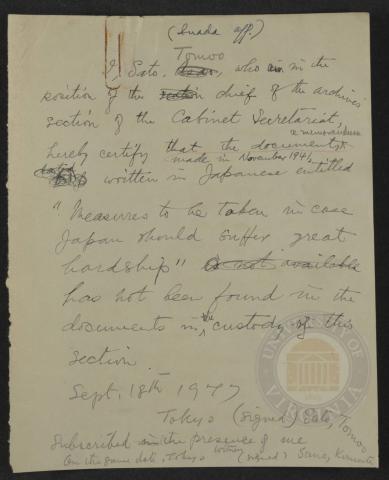 (Suada aff.)
Tomoo
I, Sato, who in the
position of the chief of the archives
section of the Cabinet Secretariat,
a memorandum
hereby certify that the documents
made in November 1941,
written in Japanese entitled
"Measures to be taken in case
Japan should suffer great
hardship" is not available
has not been found in the
documents in the custody of this
section.
Sept. 18th 1947
Tokyo (signed) Sato, Tomoo
Subscribed in the presence of me
on the same date, Tokyo witness (signed) Sano,
UNIVERSITY OF VIRGINIA